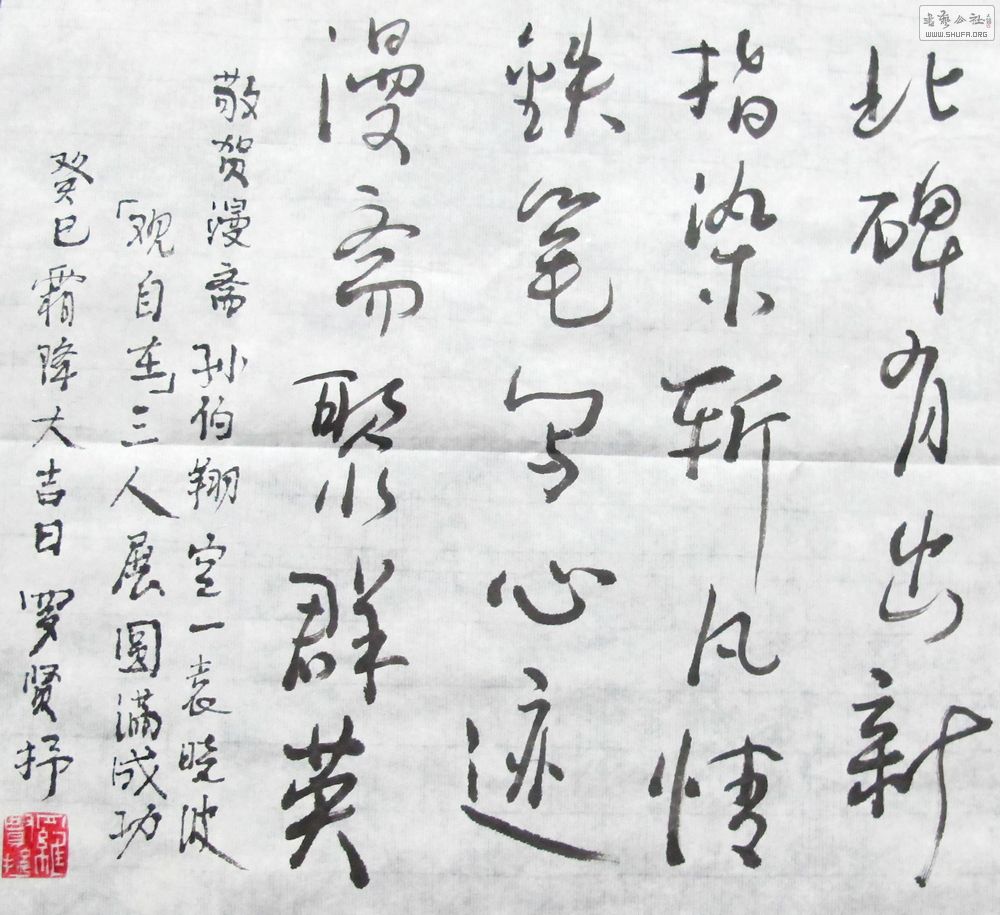 北碑有出新
指染斩凡情
鉄笔写心迹
漫斋聚群英
敬贺漫斋孙伯翔空一袁晓波
「观自在」三人展圆满成功
癸巳霜降大吉日罗贤抒
书艺公社
WWW.SHUFA.ORG